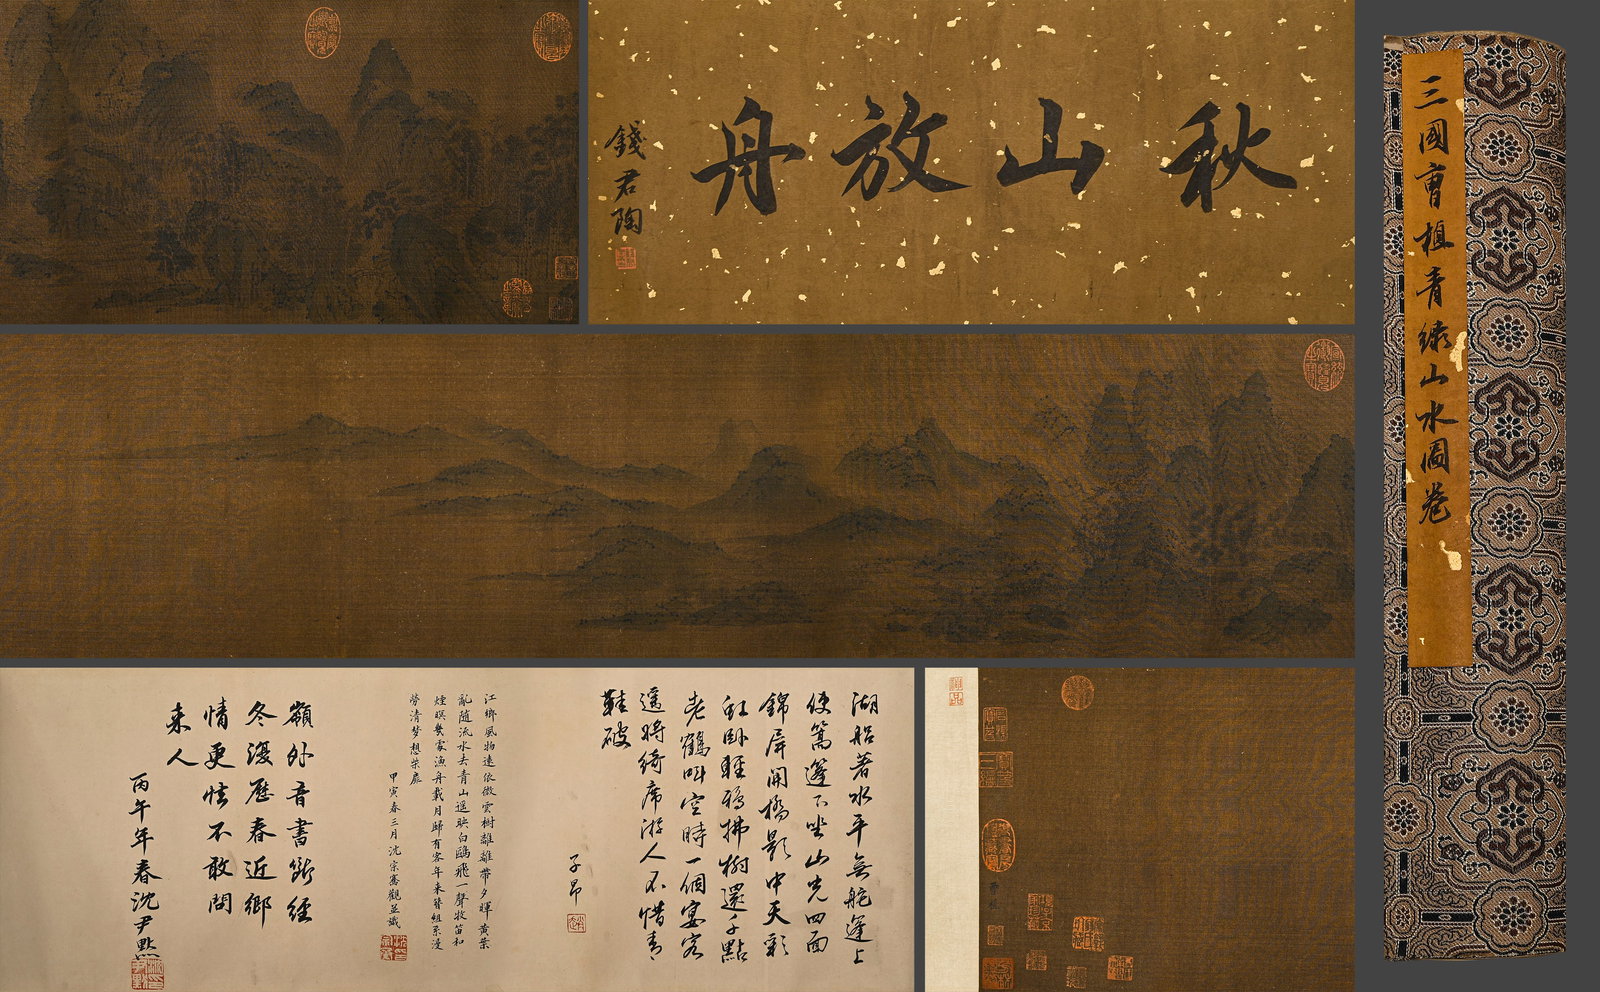 秋山放舟
錢君陶
三國曹植青綠山水圖卷
湖船著水平無舵篷上
使篙篷下坐山光四面
錦屏開橋影中天彩
虹卧輕鷗拂樹還千點
老鶴叫空時一個宴客
遥將綺席游人不惜青
鞋破
子昂
江鄉風物遠依微雲樹離離帶夕暉黃葉
亂隨流水去青山遥映白鷗飛一聲牧笛和
煙暝幾家漁舟載月歸有客年來簪組累漫
勞清夢想柴扉
甲寅春三月沈宗騫觀並識
嶺外音書斷經
冬復歷春近鄉
情更怯不敢問
来人
丙午年春沈尹默
曹植